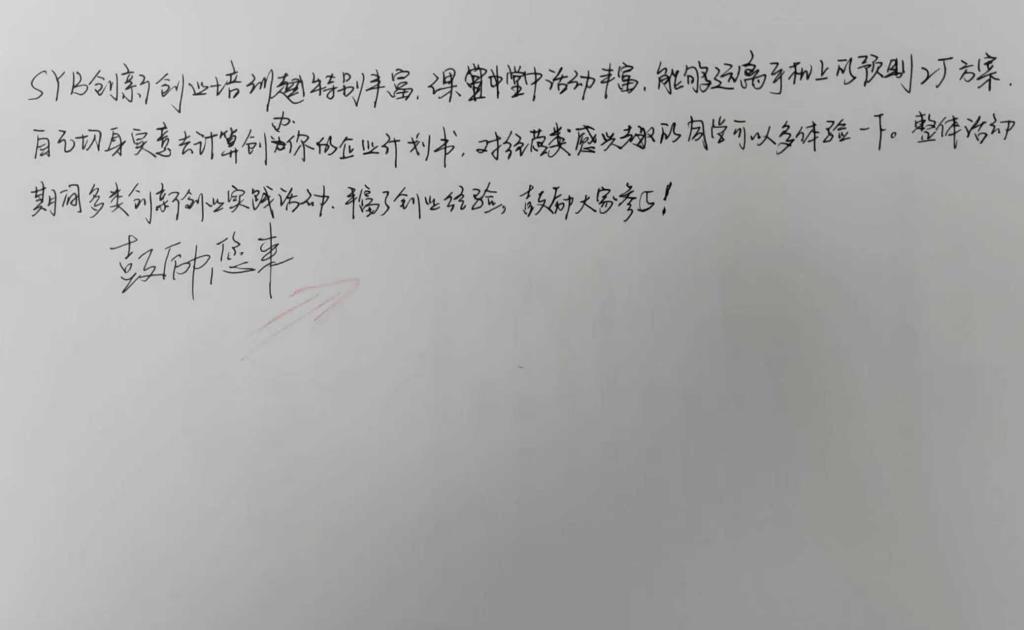 SYB创新创业培训特别丰富,课堂中活动丰富,能够远离手机上的预测方案,
自己切身实意去计算创办你的企业计划书,对经营类感兴趣的同学可以多体验一下。整体活动
期间多类创新创业实践活动,丰富了创业经验,鼓励大家参与!
鼓励您来